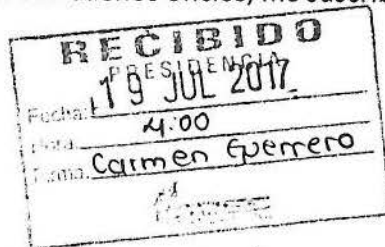 RECIBIDO
PRESIDENCIA
19 JUL 2017
Fecha:
4:00
Firma. Carmen Guerrero